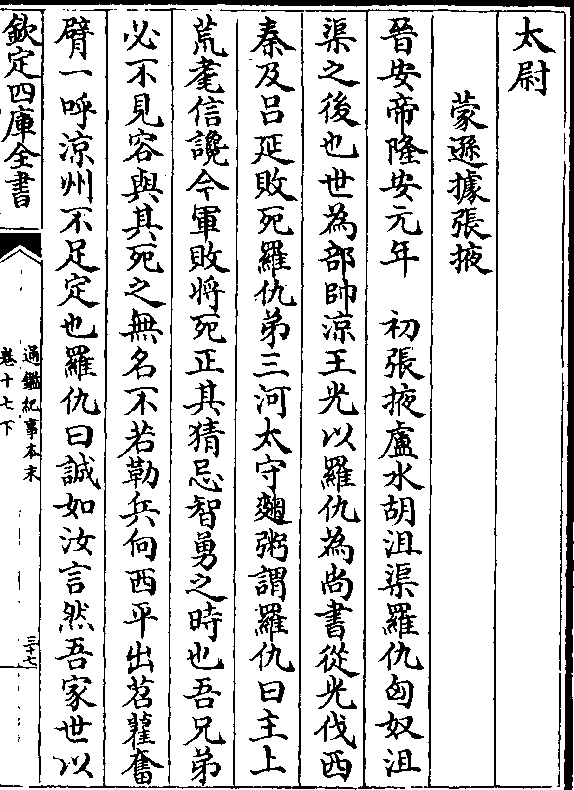 太尉
蒙遜據張掖
晉安帝隆安元年　初張掖盧水胡沮渠羅仇匈奴沮
渠之後也世為部帥涼王光以羅仇為尚書從光伐西
秦及呂延敗死羅仇弟三河太守麴粥謂羅仇曰主上
荒耄信讒今軍敗將死正其猜忌智勇之時也吾兄弟
必不見容與其死之無名不若勒兵向西平出苕藋奮
臂一呼涼州不足定也羅仇曰誠如汝言然吾家世以
欽定四庫全書
通鑑紀事本末
卷十七下
三十七